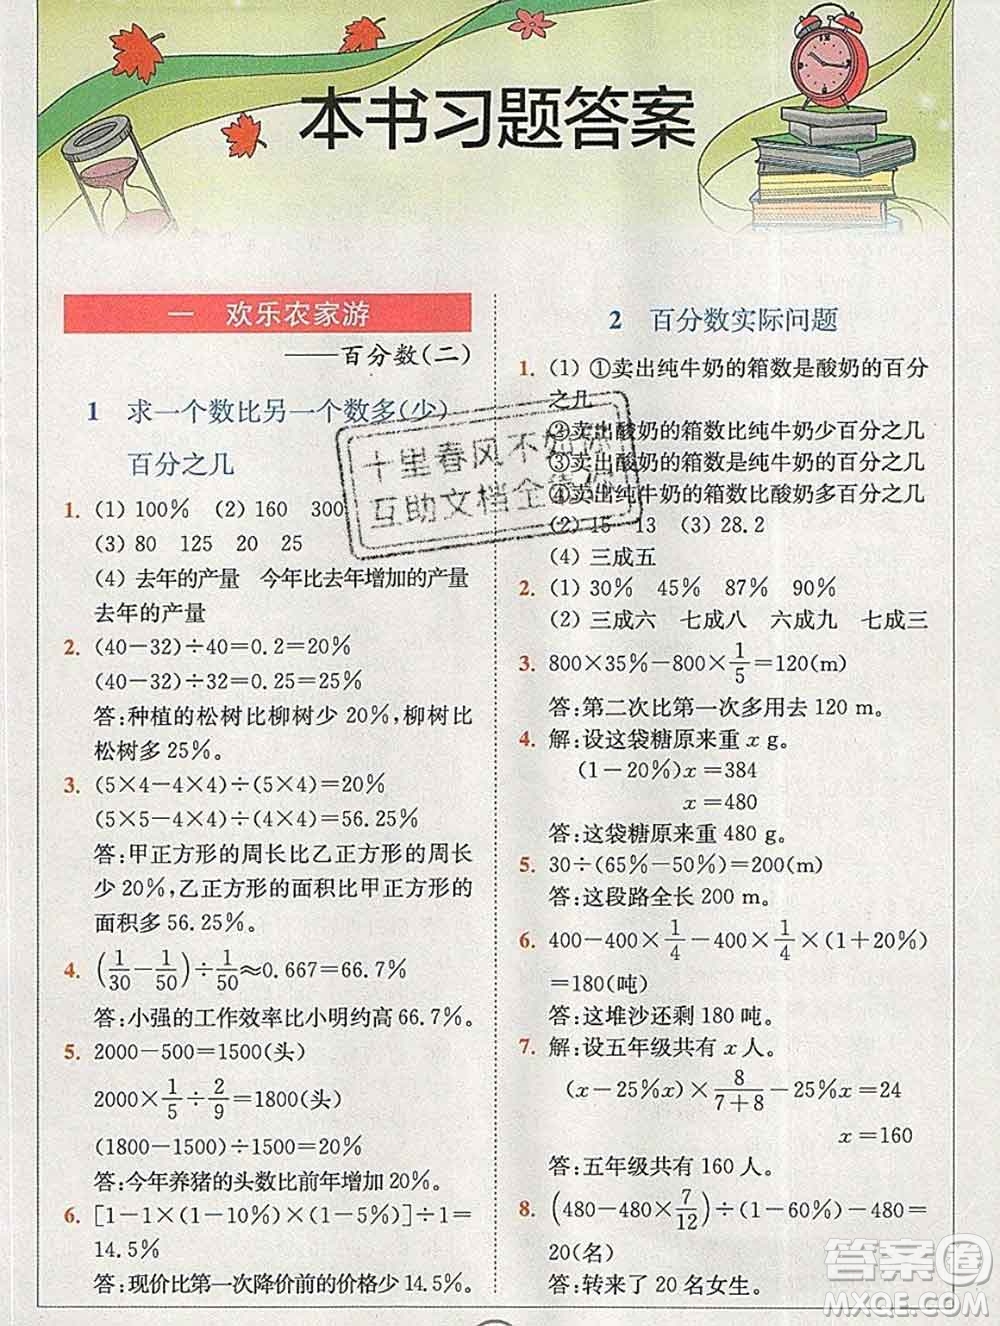 本书习题答案
一 欢乐农家游
——百分数(二)
1 求一个数比另一个数多(少)
百分之几
1. (1) 100% (2) 160 300
(3) 80 125 20 25
(4) 去年的产量 今年比去年增加的产量
去年的产量
2. (40-32)÷40=0.2=20%
(40-32)÷32=0.25=25%
答:种植的松树比柳树少 20%,柳树比
松树多 25%。
3. (5×4-4×4)÷(5×4)=20%
(5×5-4×4)÷(4×4)=56.25%
答:甲正方形的周长比乙正方形的周长
少 20%,乙正方形的面积比甲正方形的
面积多 56.25%。
4. (1/30-1/50)÷1/50≈0.667=66.7%
答:小强的工作效率比小明约高 66.7%。
5. 2000-500=1500(头)
2000×1/5÷2/9=1800(头)
(1800-1500)÷1500=20%
答:今年养猪的头数比前年增加 20%。
6. [1-1×(1-10%)×(1-5%)]÷1=
14.5%
答:现价比第一次降价前的价格少 14.5%。
2 百分数实际问题
1. (1) ①卖出纯牛奶的箱数是酸奶的百分
之几
②卖出酸奶的箱数比纯牛奶少百分之几
③卖出酸奶的箱数是纯牛奶的百分之几
④卖出纯牛奶的箱数比酸奶多百分之几
(2) 15 13 (3) 28.2
(4) 三成五
2. (1) 30% 45% 87% 90%
(2) 三成六 七成八 六成九 七成三
3. 800×35%-800×1/5=120(m)
答:第二次比第一次多用去 120 m。
4. 解:设这袋糖原来重 x g。
(1-20%)x=384
x=480
答:这袋糖原来重 480 g。
5. 30÷(65%-50%)=200(m)
答:这段路全长 200 m。
6. 400-400×1/4-400×1/4×(1+20%)
=180(吨)
答:这堆沙还剩 180 吨。
7. 解:设五年级共有 x 人。
(x-25%x)×8/(7+8)-25%x=24
x=160
答:五年级共有 160 人。
8. (480-480×7/12)÷(1-60%)-480=
20(名)
答:转来了 20 名女生。
十里春风不如你
互助文档全靠你
答案圈
MXQE.COM